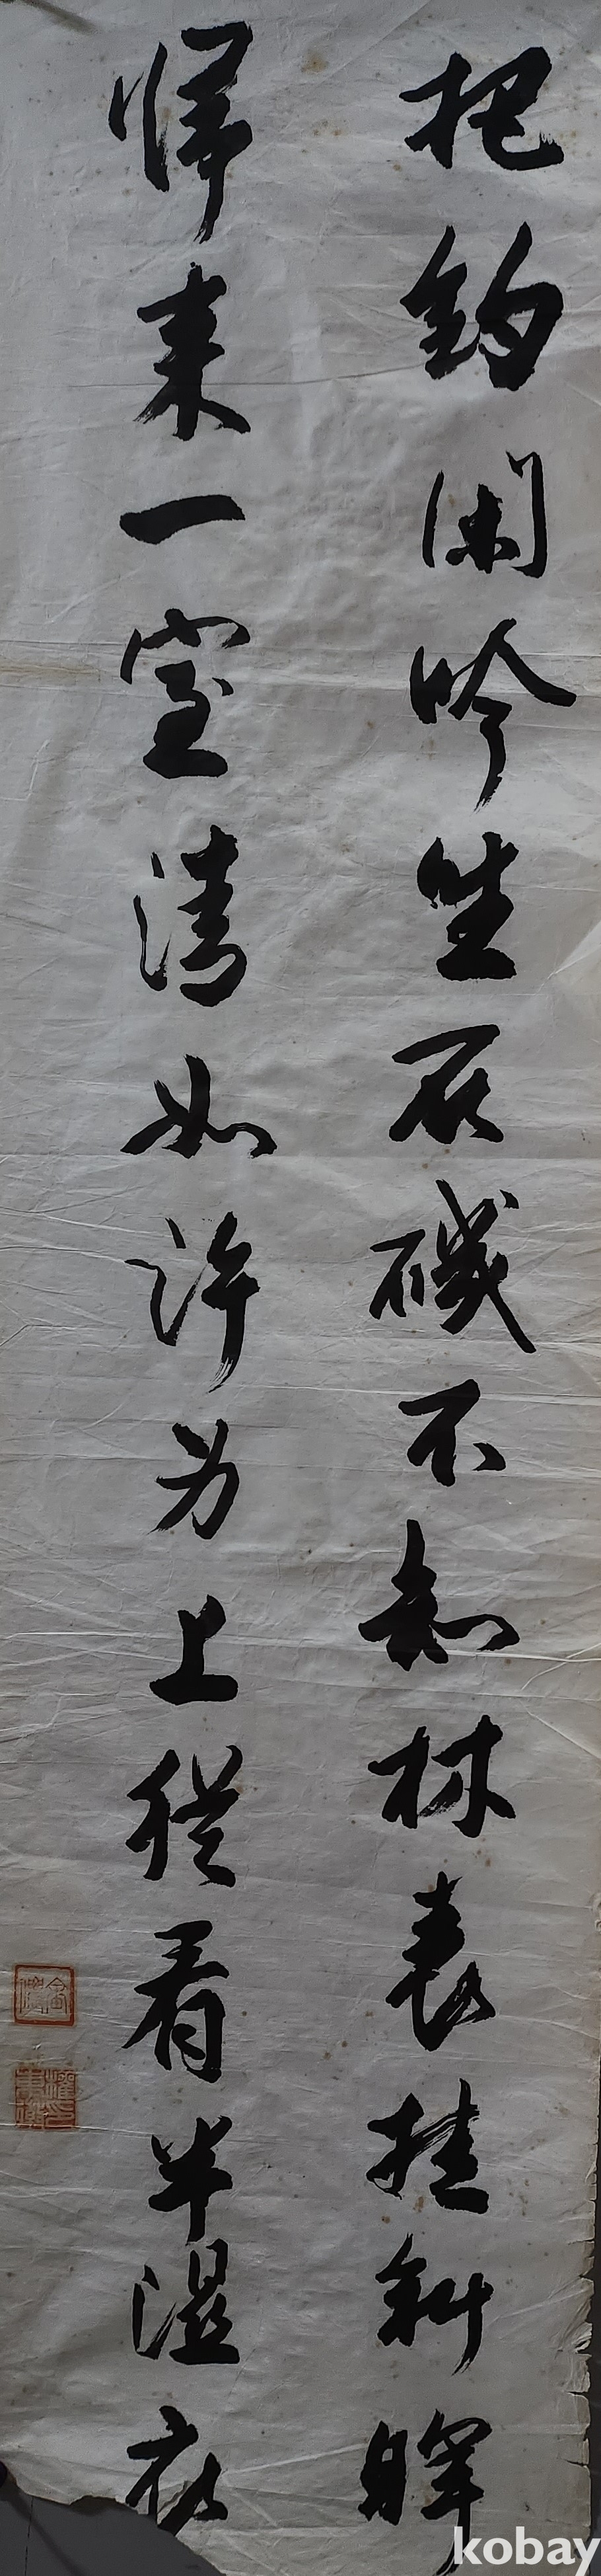 把釣閑吟坐石磯不知林表挂斜暉
歸来一室清如許为上從看半湿衣
kobay